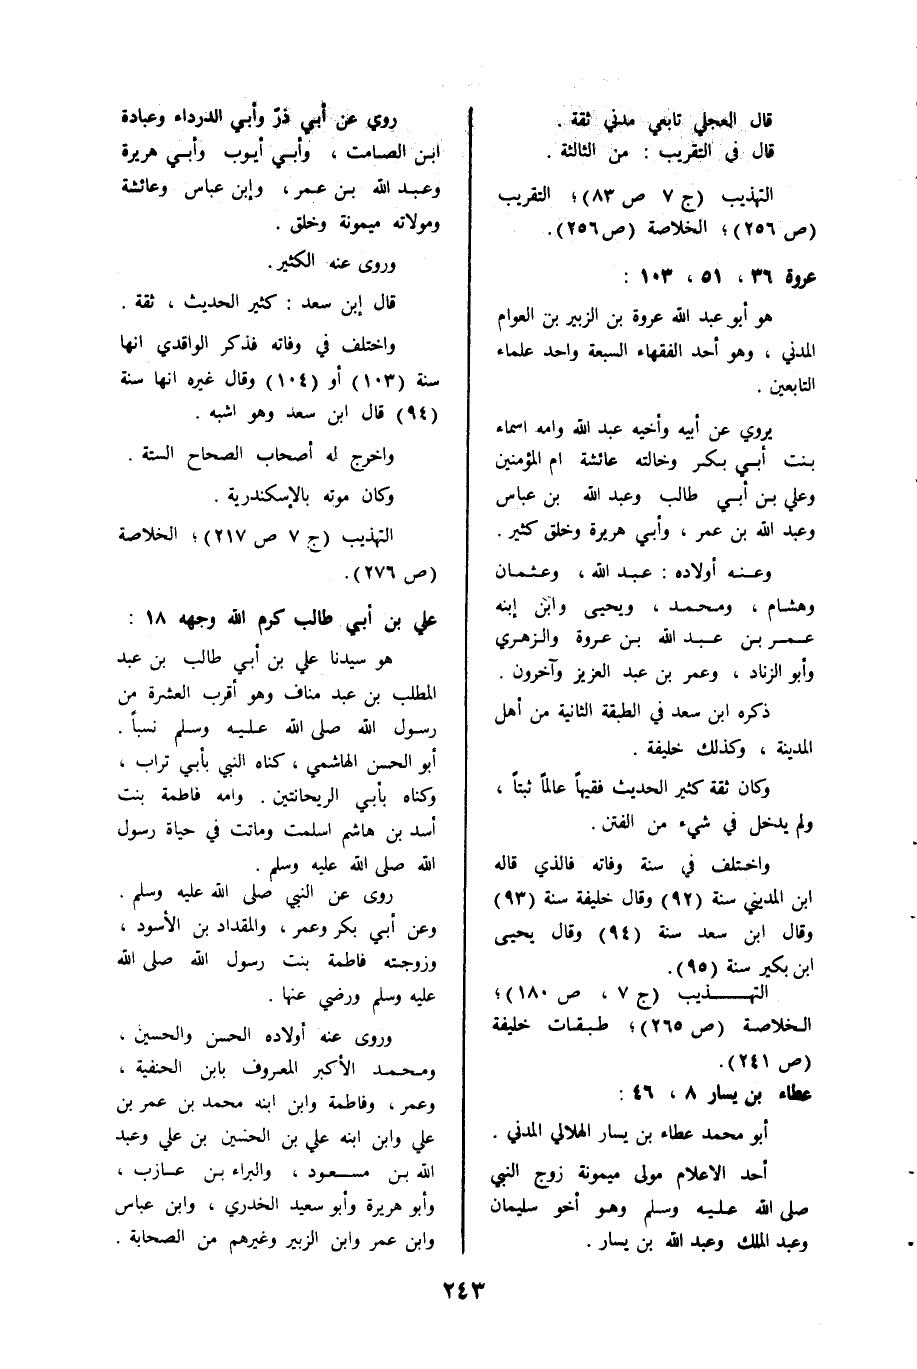 قال العجلي تابعي مدني ثقة .
قال في التقريب : من الثالثة .
التهذيب (ج ٧ ص ٨٣)؛ التقريب
(ص ٢٥٦)؛ الخلاصة (ص ٢٥٦).
عروة ٣٦ ، ٥١ ، ١٠٣ :
هو أبو عبد الله عروة بن الزبير بن العوام
المدني ، وهو أحد الفقهاء السبعة واحد علماء
التابعين .
يروي عن أبيه وأخيه عبد الله وامه اسماء
بنت أبي بكر وخالته عائشة ام المؤمنين
وعلي بن أبي طالب وعبد الله بن عباس
وعبد الله بن عمر ، وأبي هريرة وخلق كثير .
وعنه أولاده : عبد الله ، وعثمان
وهشام ، ومحمد ، ويحيى وابن إبنه
عمر بن عبد الله بن عروة والزهري
وأبو الزناد ، وعمر بن عبد العزيز وآخرون .
ذكره ابن سعد في الطبقة الثانية من أهل
المدينة ، وكذلك خليفة .
وكان ثقة كثير الحديث فقيهاً عالماً ثبتاً ،
ولم يدخل في شيء من الفتن .
واختلف في سنة وفاته فالذي قاله
ابن المديني سنة (٩٢) وقال خليفة سنة (٩٣)
وقال ابن سعد سنة (٩٤) وقال يحيى
ابن بكير سنة (٩٥).
التهذيب (ج ٧ ، ص ١٨٠)؛
الخلاصة (ص ٢٦٥)؛ طبقات خليفة
(ص ٢٤١).
عطاء بن يسار ٨ ، ٤٦ :
أبو محمد عطاء بن يسار الهلالي المدني .
أحد الاعلام مولى ميمونة زوج النبي
صلى الله عليه وسلم وهو أخو سليمان
وعبد الملك وعبد الله بن يسار .
روي عن أبي ذرّ وأبي الدرداء وعبادة
ابن الصامت ، وأبي أيوب وأبي هريرة
وعبد الله بن عمر ، وإبن عباس وعائشة
ومولاته ميمونة وخلق .
وروى عنه الكثير.
قال إبن سعد : كثير الحديث ، ثقة .
واختلف في وفاته فذكر الواقدي انها
سنة (١٠٣) أو (١٠٤) وقال غيره انها سنة
(٩٤) قال ابن سعد وهو اشبه .
واخرج له أصحاب الصحاح الستة .
وكان موته بالإسكندرية .
التهذيب (ج ٧ ص ٢١٧)؛ الخلاصة
(ص ٢٧٦).
علي بن أبي طالب كرم الله وجهه ١٨ :
هو سيدنا علي بن أبي طالب بن عبد
المطلب بن عبد مناف وهو أقرب العشرة من
رسول الله صلى الله عليه وسلم نسباً .
أبو الحسن الهاشمي ، كناه النبي بأبي تراب ،
وكناه بأبي الريحانتين . وامه فاطمة بنت
أسد بن هاشم اسلمت وماتت في حياة رسول
الله صلى الله عليه وسلم .
روى عن النبي صلى الله عليه وسلم .
وعن أبي بكر وعمر ، والمقداد بن الأسود ،
وزوجته فاطمة بنت رسول الله صلى الله
عليه وسلم ورضي عنها .
وروى عنه أولاده الحسن والحسين ،
ومحمد الأكبر المعروف بابن الحنفية ،
وعمر ، وفاطمة وابن ابنه محمد بن عمر بن
علي وابن ابنه علي بن الحسين بن علي وعبد
الله بن مسعود ، والبراء بن عازب ،
وأبو هريرة وأبو سعيد الخدري ، وابن عباس
وابن عمر وابن الزبير وغيرهم من الصحابة .
٢٤٣